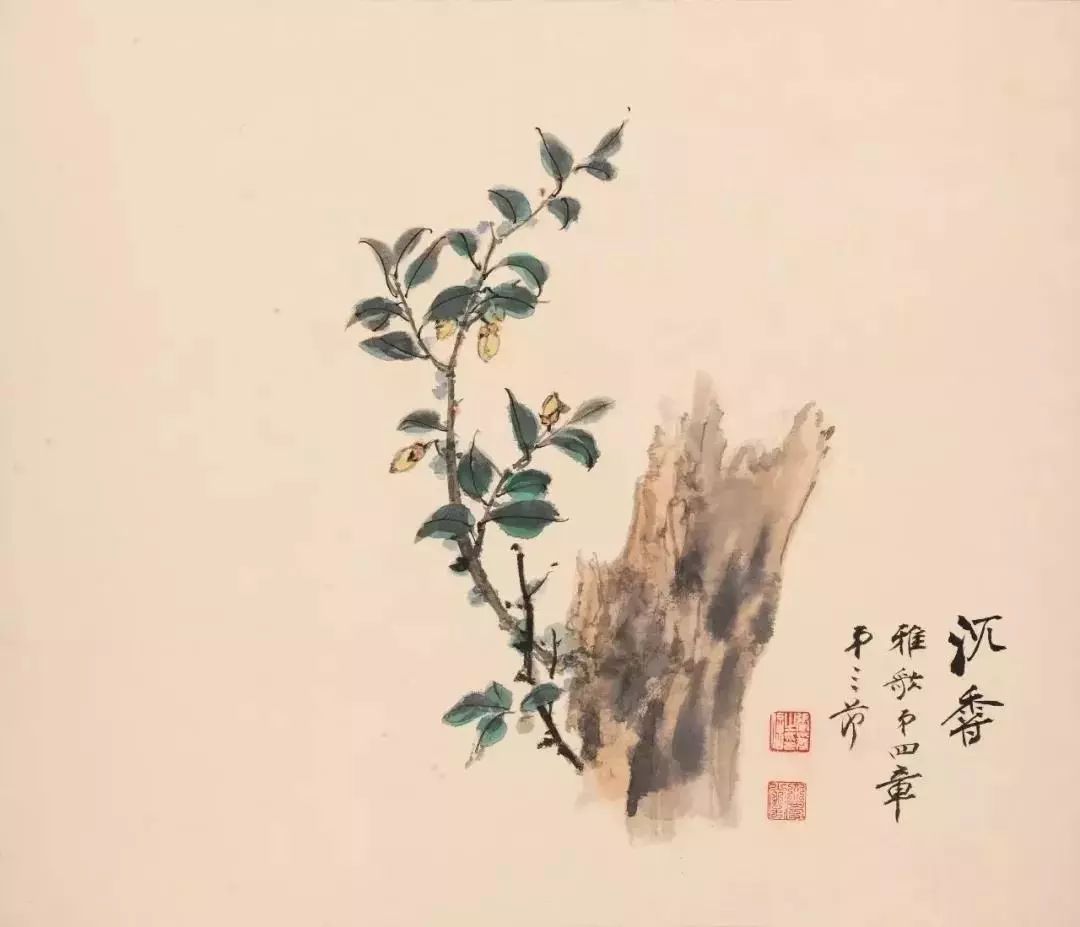 沉香
雅歌第四章
第三节